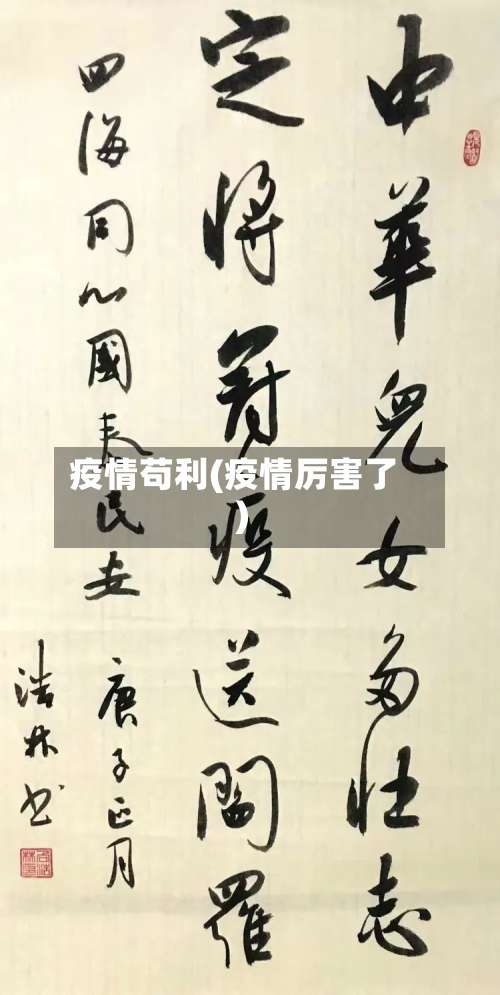 中華兒女多壮志
定将疫送閻羅
四海同心國泰民安
庚子正月
林书
疫情苟利(疫情厉害了
)